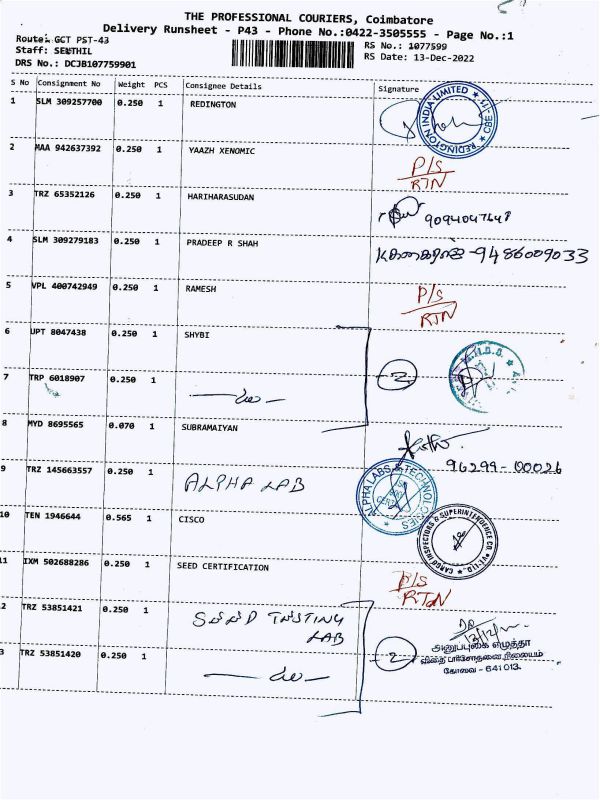 THE PROFESSIONAL COURIERS, Coimbatore
Delivery Runsheet - P43 - Phone No.:0422-3505555 - Page No.:1
Route: GCT PST-43
Staff: SENTHIL
DRS No.: DCJB107759901
RS No.: 1077599
RS Date: 13-Dec-2022
S No Consignment No Weight PCS Consignee Details Signature
1 SLM 309257700 0.250 1 REDINGTON
REDINGTON INDIA LIMITED * CBE-11 *
2 MAA 942637392 0.250 1 YAAZH XENOMIC P/S
RTN
3 TRZ 65352126 0.250 1 HARIHARASUDAN
4 SLM 309279183 0.250 1 PRADEEP R SHAH கனகராஜ் -9486009033
5 VPL 400742949 0.250 1 RAMESH P/S
RTN
6 UPT 8047438 0.250 1 SHYBI
7 TRP 6018907 0.250 1 2
8 MYD 8695565 0.070 1 SUBRAMAIYAN
96299-00026
9 TRZ 145663557 0.250 1 ALPHA LAB
ALPHA LABS & TECHNOLOGIES
10 TEN 1946644 0.565 1 CISCO
CARGO INSPECTORS & SUPERINTENDENCE CO. PVT. LTD.
11 IXM 502688286 0.250 1 SEED CERTIFICATION P/S
RTN
2 TRZ 53851421 0.250 1 SEED TESTING
LAB
3 TRZ 53851420 0.250 1 2
அனுப்புகை எழுத்தர்
விதை பரிசோதனை நிலையம்
கோவை - 641 013.